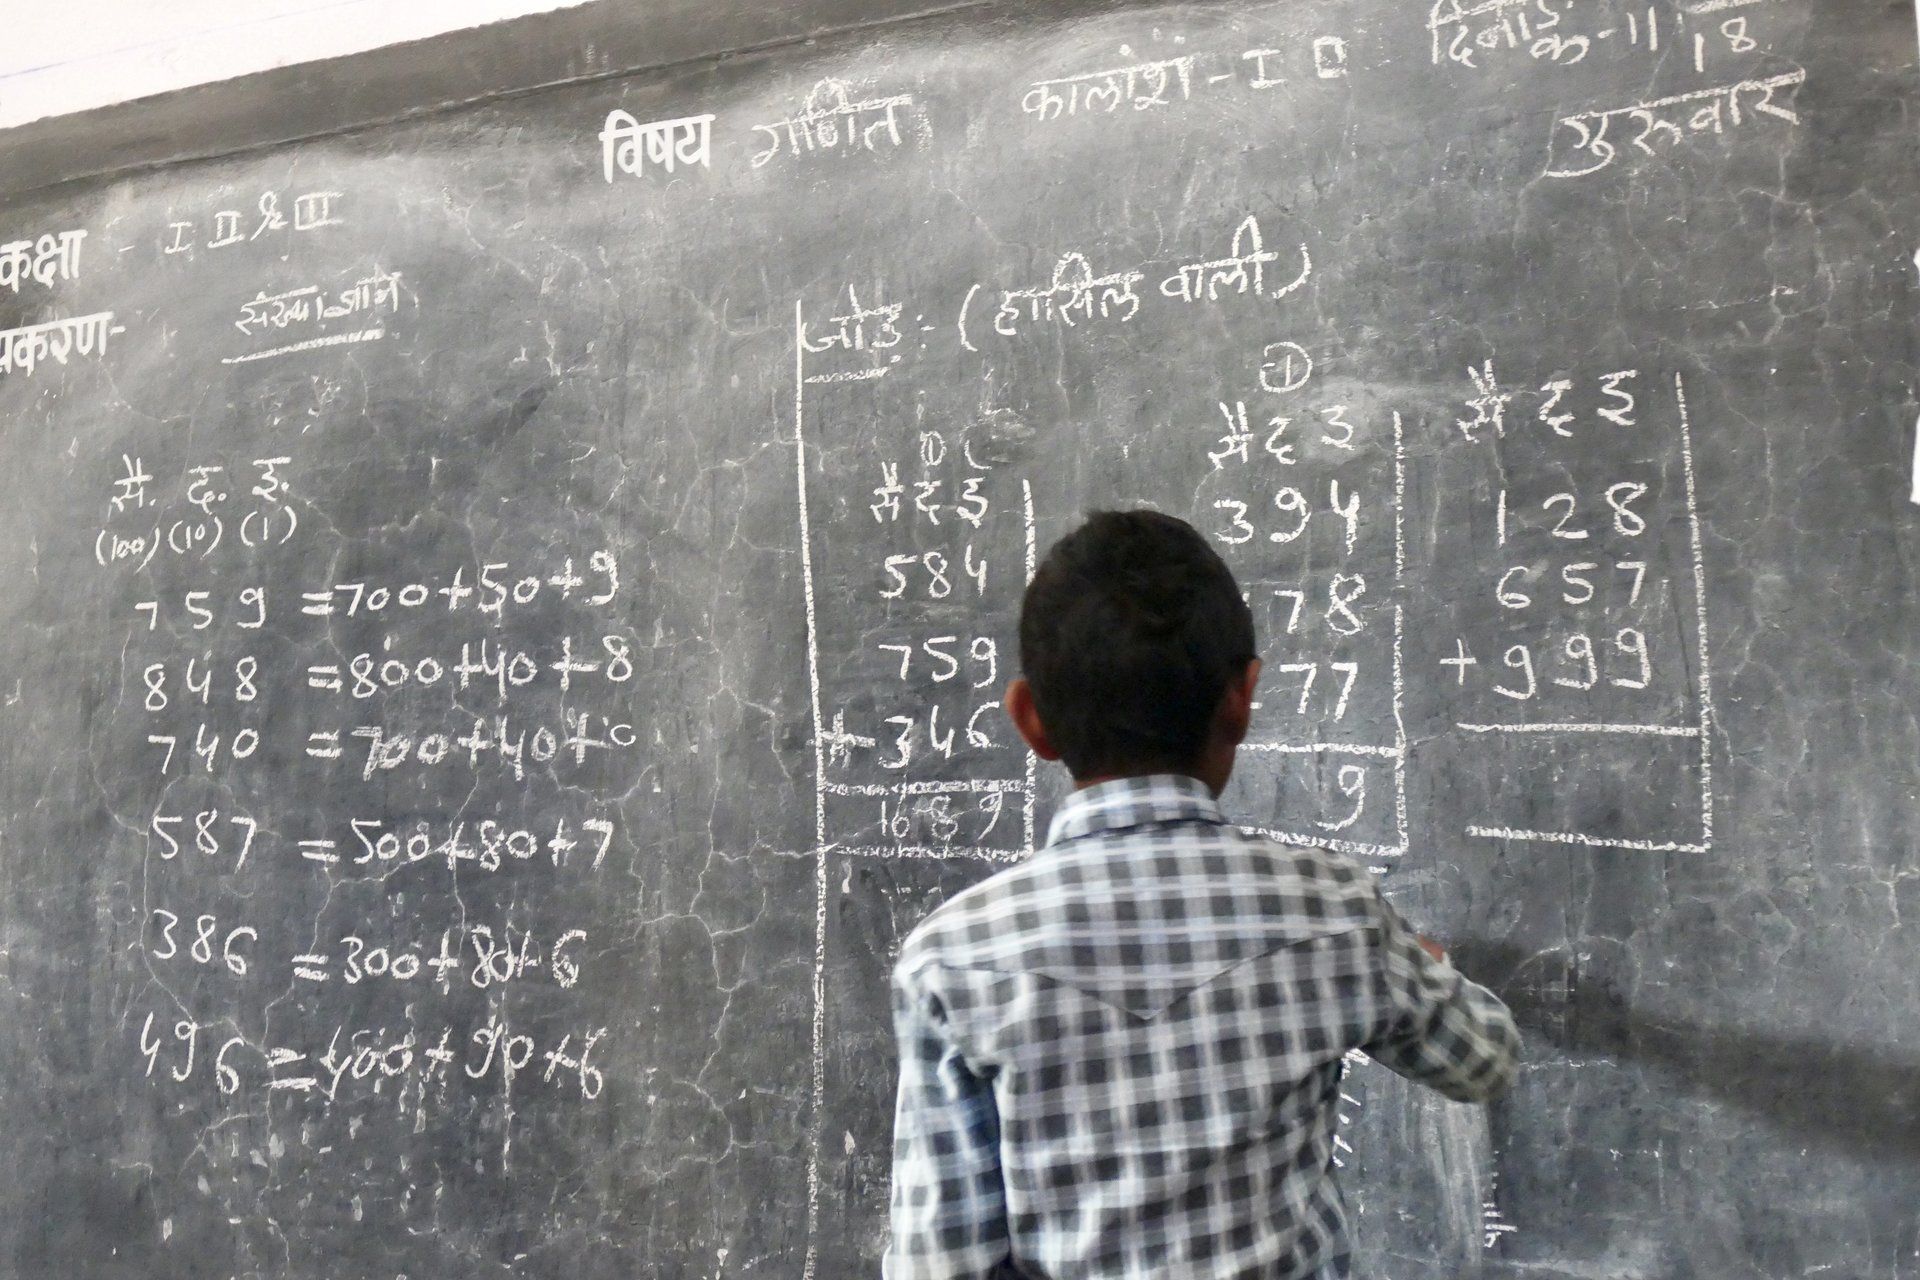 दिनांक-11 18
विषय गणित कालांश-I
गुरुवार
कक्षा - I II & III
प्रकरण- संख्या ज्ञान
जोड़:- (हासिल वाली)
सै. द. इ.
(100) (10) (1)
759 =700+50+9
848 =800+40+8
740 =700+40+0
587 =500+80+7
386 =300+80+6
496 =400+90+6
①
सै द इ
584
759
+346
1689
①
सै द इ
394
78
77
9
सै द इ
128
657
+999